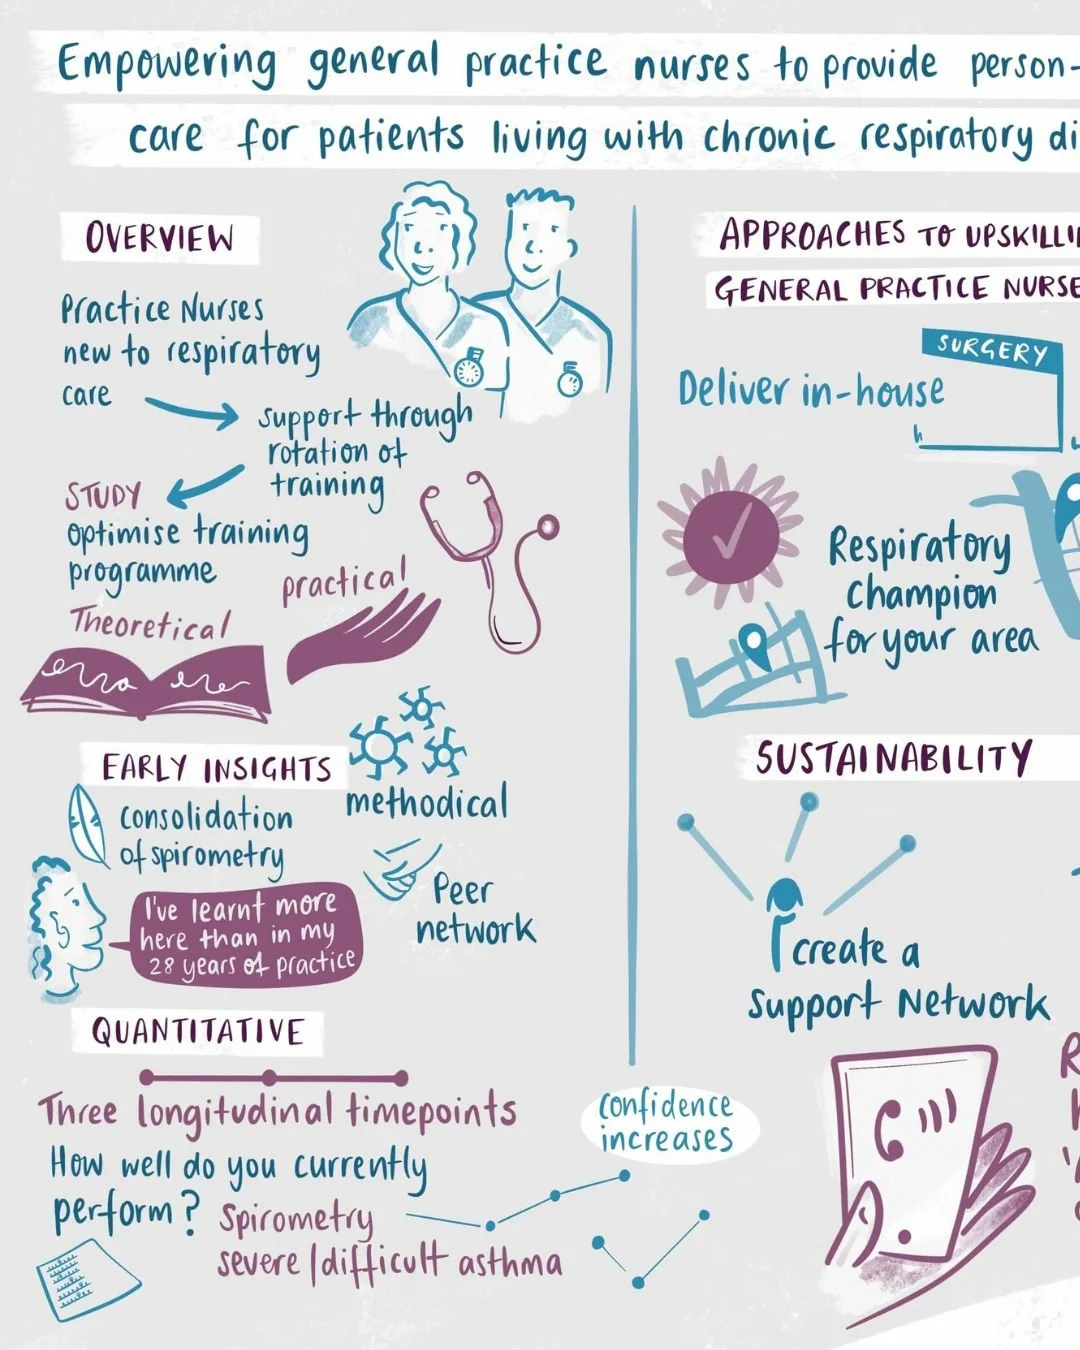 Empowering general practice nurses to provide person-
care for patients living with chronic respiratory di
OVERVIEW
Practice Nurses
new to respiratory
care
support through
rotation of
training
STUDY
optimise training
programme
practical
Theoretical
EARLY INSIGHTS
consolidation
of spirometry
methodical
Peer
network
I've learnt more
here than in my
28 years of practice
QUANTITATIVE
Three longitudinal timepoints
How well do you currently
perform?
Spirometry
severe/difficult asthma
confidence
increases
APPROACHES TO UPSKILLI
GENERAL PRACTICE NURSE
SURGERY
Deliver in-house
Respiratory
Champion
for your area
SUSTAINABILITY
create a
Support Network